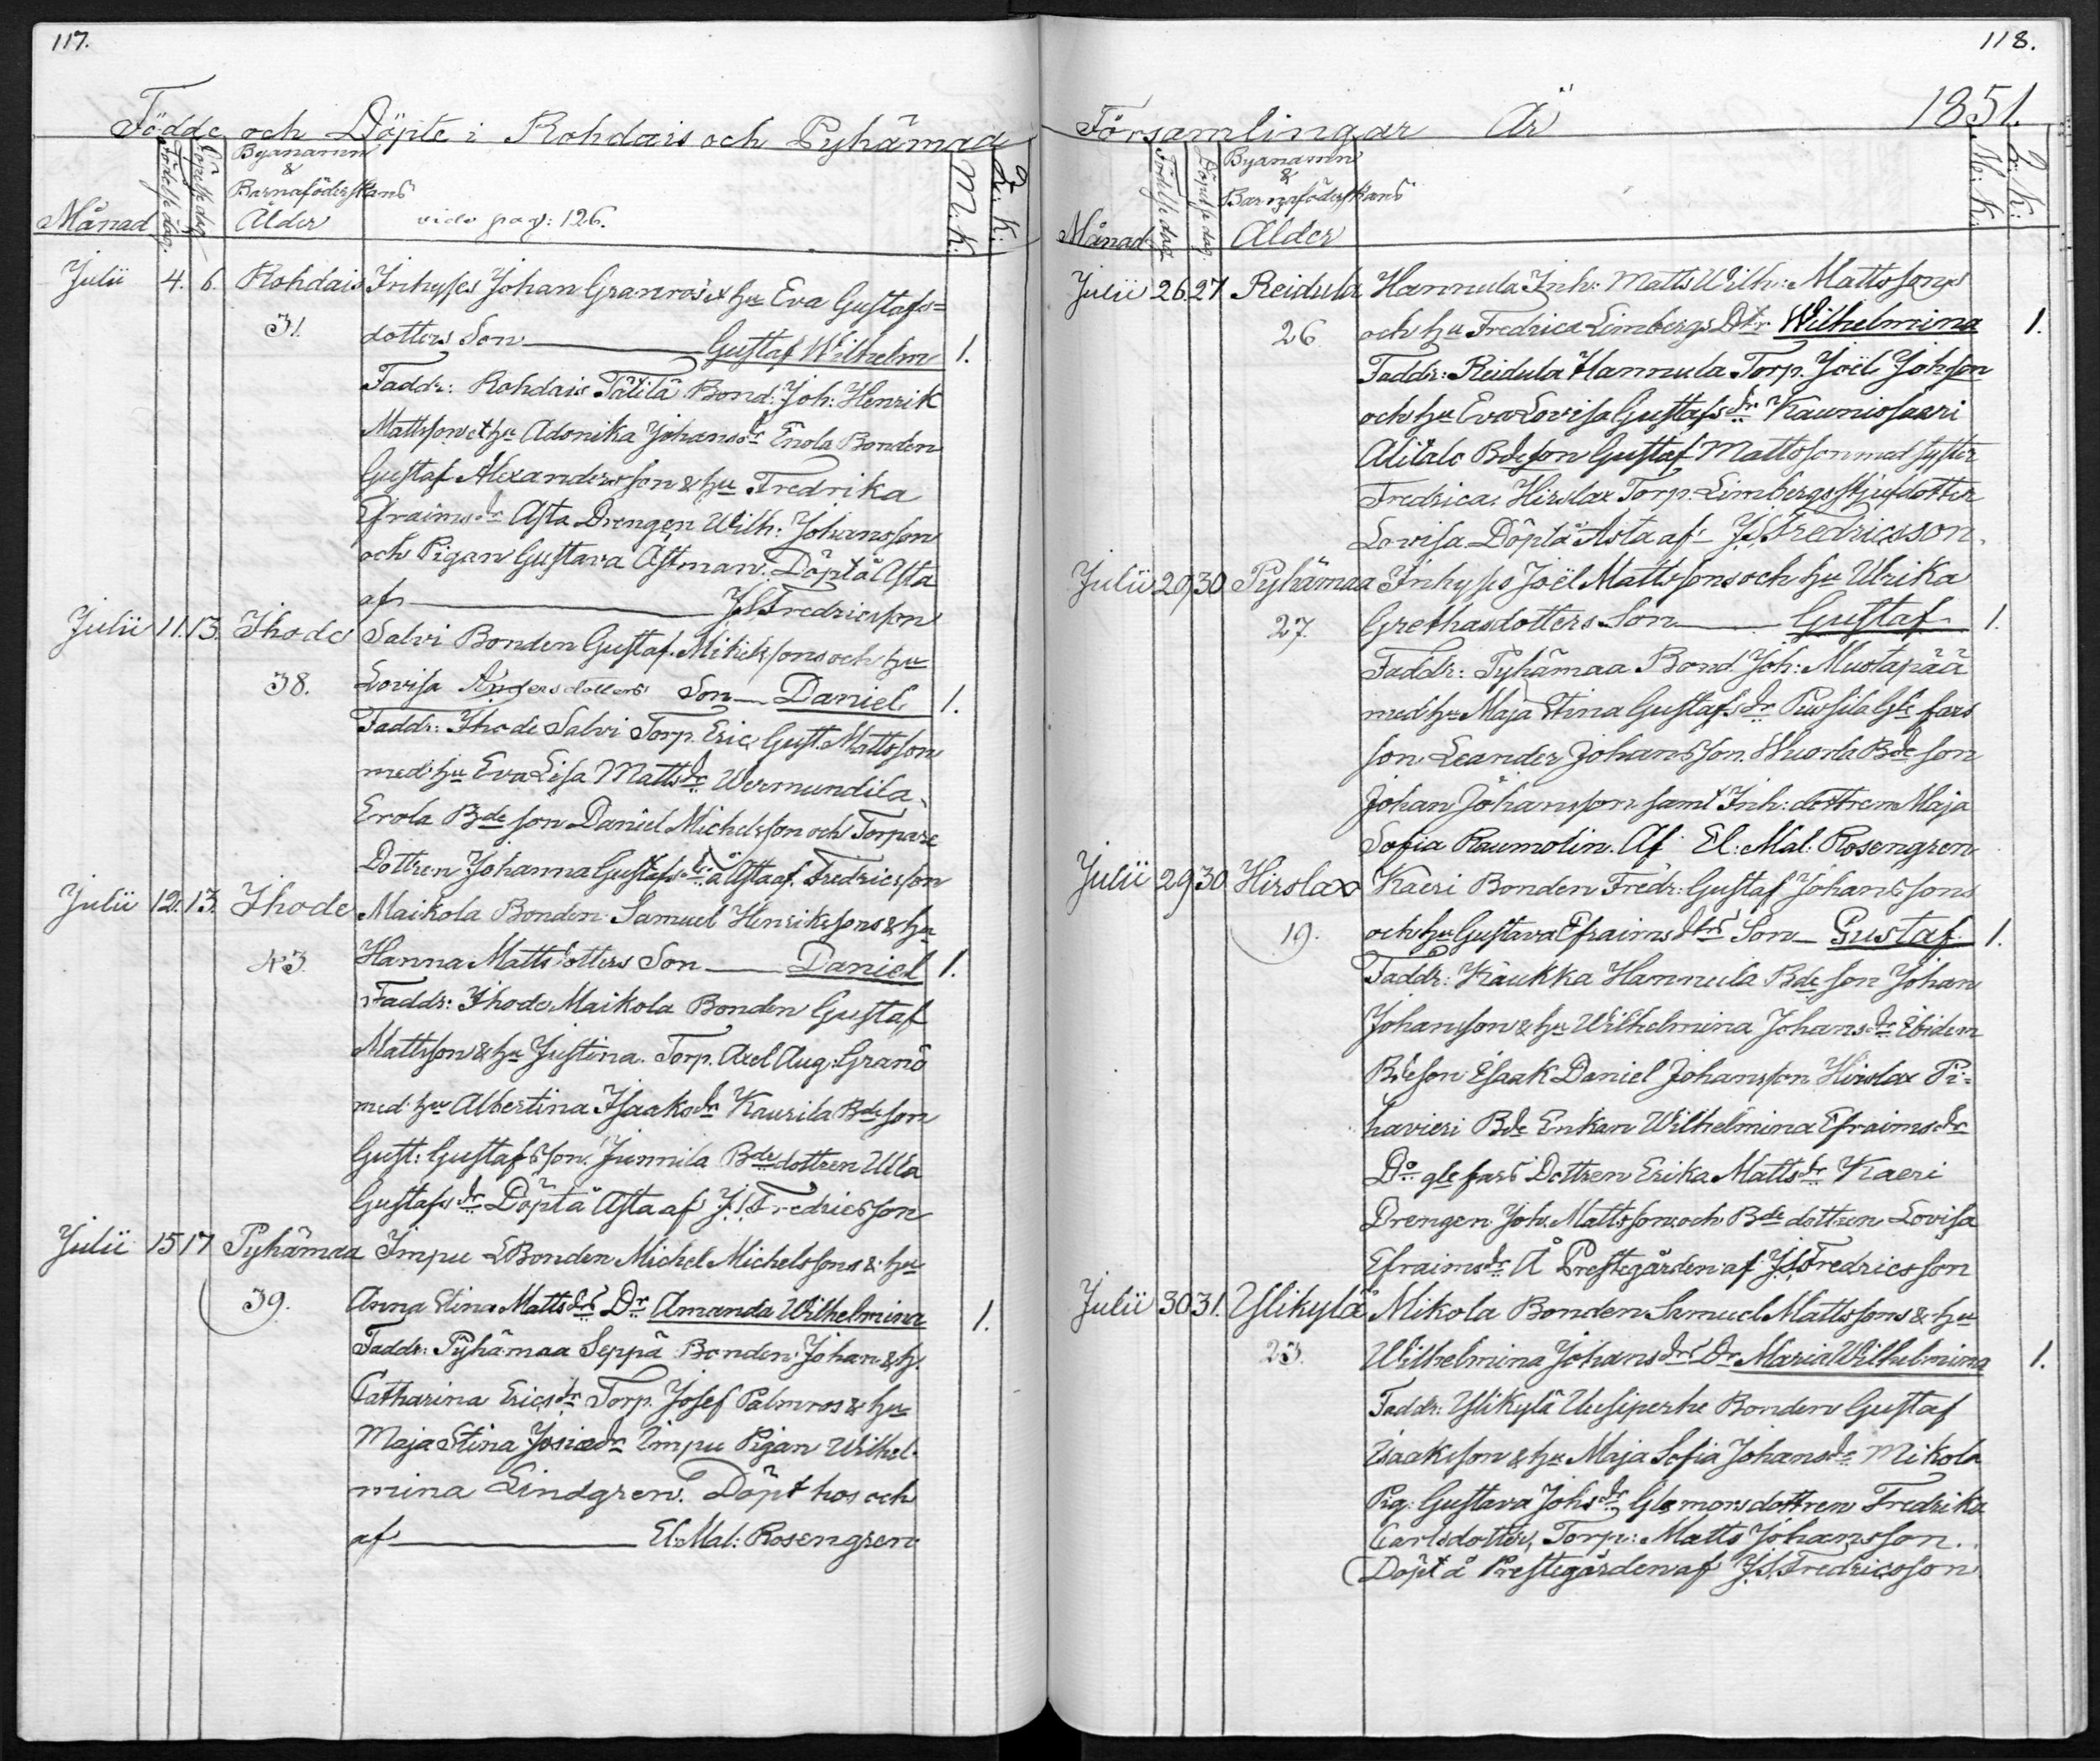 117.
Födde och Döpte i Rohdais och Pyhämaa
Månad
Födelse dag.
Döpelse dag
Byanamn
&
Barnaföderskans
Ålder
vide pag: 126.
M. K.
Qv: K:
Julii 4. 6. Rohdais Inhyses Johan Granros et hu Eva Gustafs=
31. dotters Son Gustaf Wilhelm 1.
Faddr: Rohdais Tätilä Bond: Joh: Henrik
Mattsson et hu Adonika Johansdr Enola Bonden
Gustaf Alexandersson & hu Fredrika
Efraimsdr Asta Drengen Wilh: Johansson
och Pigan Gustava Åstman. Döpt å Asta
af J.S.Fredricsson
Julii 11. 13. Ihode Salvi Bonden Gustaf Mikelssons och hu
38. Lovisa Andersdotters Son Daniel 1.
Faddr: Ihode Salvi Torp. Eric Gust. Mattsson
med hu Eva Lisa Mattsdr Wermundila
Erola Bde son Daniel Michelsson och Torpare
Dottren Johanna Gustafsdr å Asta af Fredricsson
Julii 12. 13. Ihode Maikola Bonden Samuel Henrikssons & hu
43. Hanna Mattsdotters Son Daniel 1.
Faddr: Ihode Maikola Bonden Gustaf
Mattsson & hu Justina. Torp. Axel Aug: Granö
med hu Albertina Isaaksdr Kaurila Bde son
Gust: Gustafsson. Junnila Bde dottren Ulla
Gustafsdr Döpt å Asta af J.S.Fredricsson
Julii 15 17 Pyhämaa Impu Bonden Michel Michelssons & hu
39. Anna Stina Mattsdrs Dr Amanda Wilhelmina 1.
Faddr: Pyhämaa Seppä Bonden Johan & h.
Catharina Ericsdr Torp. Josef Palmros & hu
Maja Stina Josiasdr Impu Pigan Wilhel-
mina Lindgren. Döpt hos och
af El: Mal: Rosengren
118.
Församlingar År 1851.
Månad
Födelse dag
Döpelse dag
Byanamn
&
Barnaföderskans
Ålder
M: K:
Qv: K:
Julii 26 27 Reidula Hannula Inh: Matts Wilh: Mattssons
26 och hu Fredrica Limbergs Dtr Wilhelmina 1.
Faddr: Reidula Hannula Torp. Joël Johsson
och hu Eva Lovisa Gustafsdr Kaunissaari
Alitalo Bde son Gustaf Mattsson med syster
Fredrica. Hirslax Torp. Limbergs styfdotter
Lovisa Döpt å Asta af J.S.Fredricsson.
Julii 29 30 Pyhämaa Inhyses Joël Mattssons och hu Ulrika
27. Grethasdotters Son Gustaf 1.
Faddr: Pyhämaa Bond. Joh: Mustapää
med hu Maja Stina Gustafsdr Pursila Gle fars
son Leander Johansson. Wuorla Bde son
Johan Johansson samt Inh: dottren Maja
Sofia Raumolin. Af El: Mal: Rosengren
Julii 29 30 Hirslax Kaeri Bonden Fredr: Gustaf Johanssons
19. och hu Gustava Efraimsdtrs Son Gustaf 1.
Faddr: Kaukka Hannula Bde son Johan
Johansson & hu Wilhelmina Johansdr Ibidem
Bde son Esaak Daniel Johansson Hirslax Pi=
havieri Bde Enkan Wilhelmina Efraimsdr
Do gle fars Dottren Erika Mattsdr Kaeri
Drengen Joh. Mattsson och Bde dottren Lovisa
Efraimsdr Å Prestegården af J.S.Fredricsson
Julii 30 31. Ylikylä Mikola Bonden Samuel Mattssons & hu
23. Wilhelmina Johansdrs Dr Maria Wilhelmina 1.
Faddr: Ylikylä Uusiperhe Bonden Gustaf
Isaaksson & hu Maja Sofia Johansdr Mikola
Pig: Gustava Johsdr Glemorsdottren Fredrika
Carlsdotter, Torp: Matts Johansson.
Döpt å Prestegården af J.S.Fredricsson